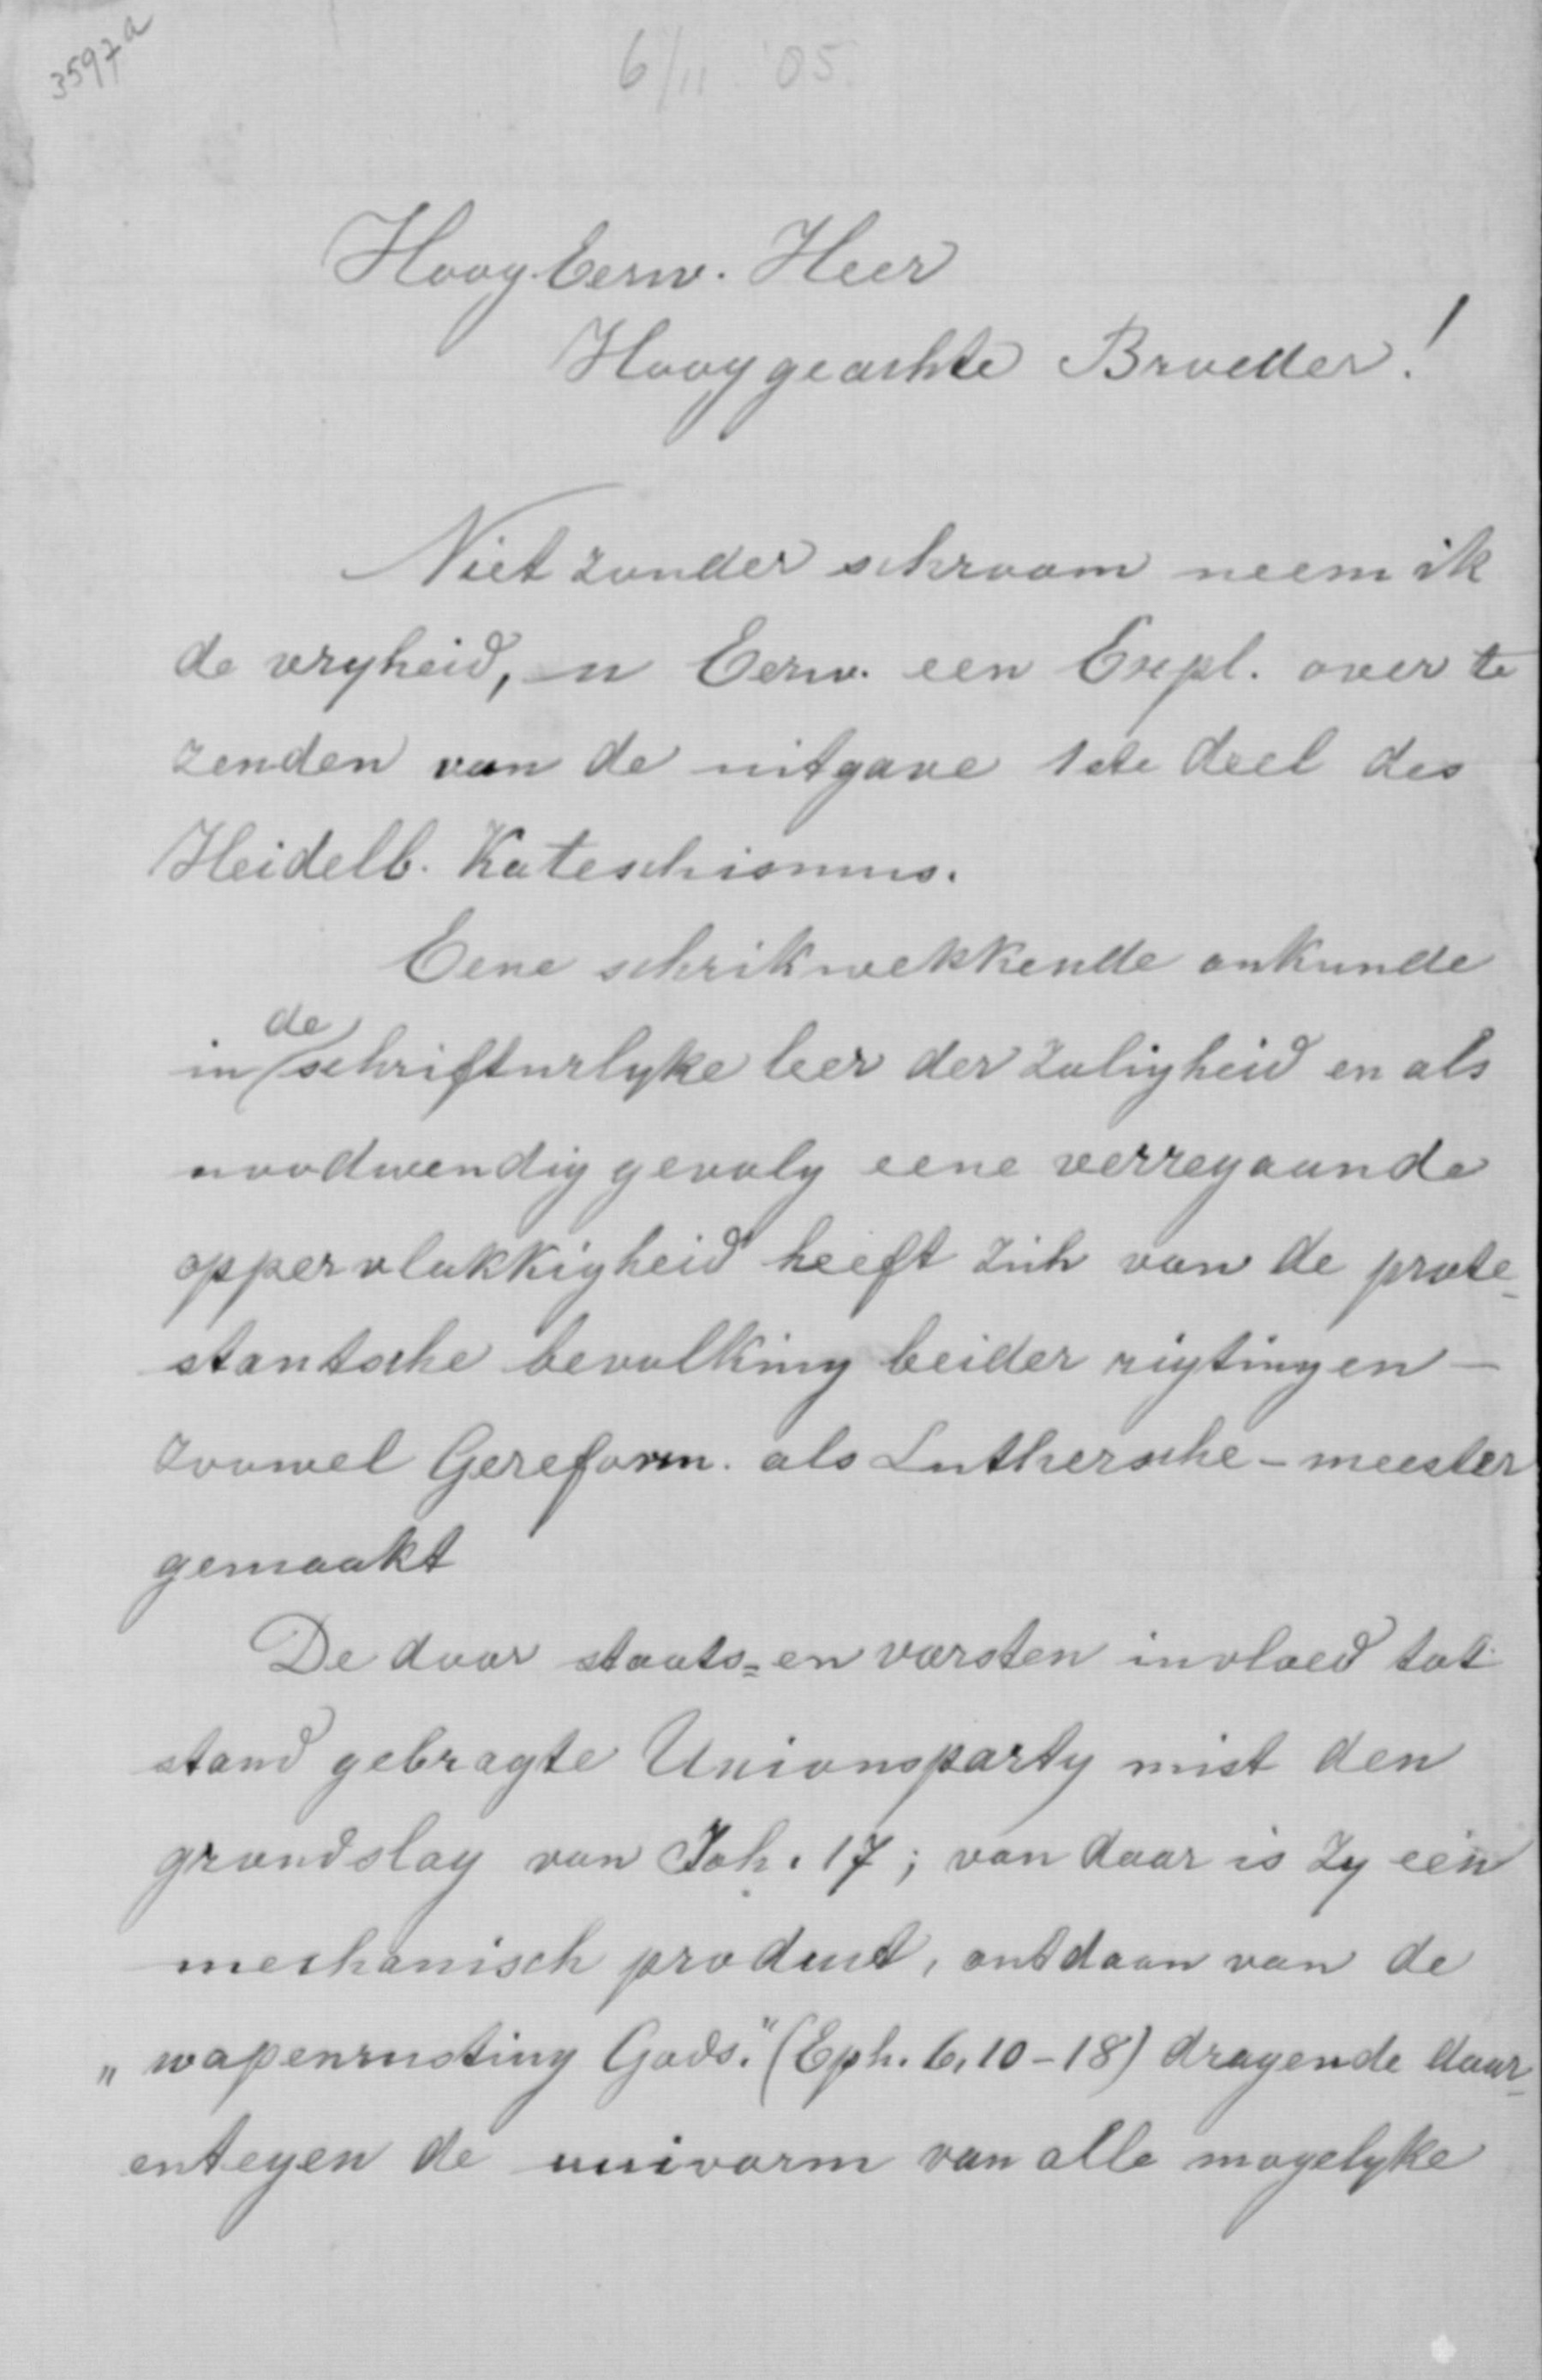 3597a
6/11 '05.
Hoog. Eerw. Heer
Hooggeachte Broeder!
Niet zonder schroom neem ik
de vryheid, u Eerw. een Expl. over te
zenden van de uitgave 1ste deel des
Heidelb. Kateschismus.
Eene schrikwekkende onkunde
in de schrifturlyke leer der zaligheid en als
noodwendig gevolg eene verregaande
oppervlakkigheid heeft zich van de prote-
stantsche bevolking beider rigtingen -
zoowel Gereform. als Luthersche - meester
gemaakt
De door staats- en vorsten invloed tot
stand gebragte Unionsparty mist den
grondslag van Joh. 17; van daar is zy eén
mechanisch product, ontdaan van de
„wapenrusting Gods." (Eph. 6, 10-18) dragende daar-
entegen de univorm van alle mogelyke